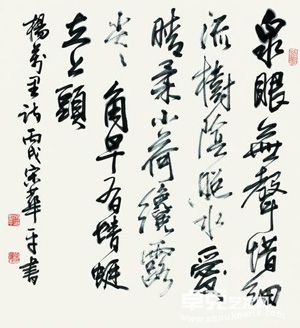 泉眼無聲惜細
流樹陰照水愛
晴柔小荷纔露
尖〻角早有蜻蜓
立上頭
楊萬里詩丙戌宋華平書